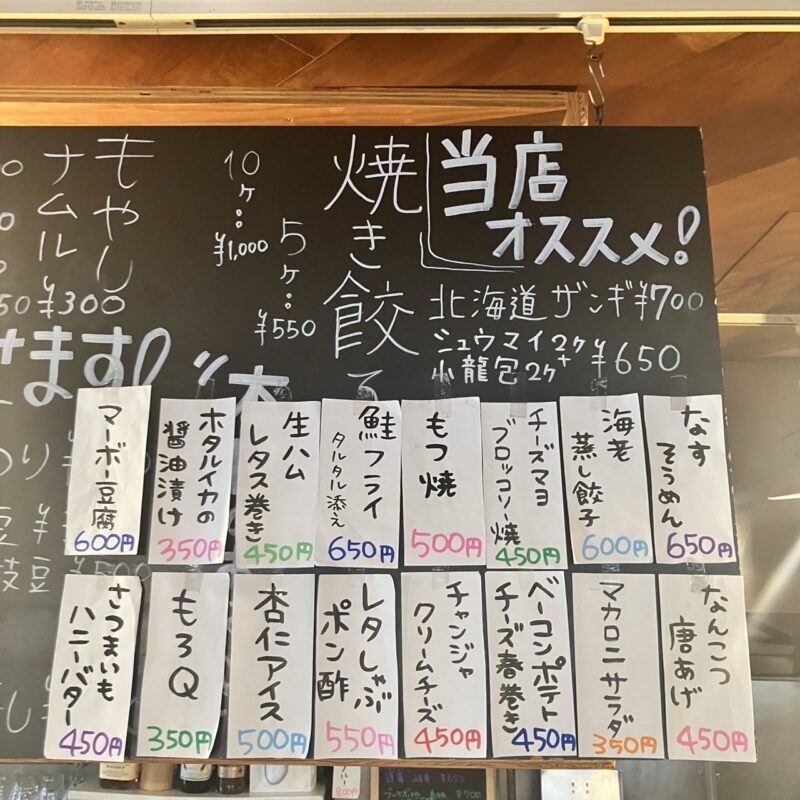 当店
オススメ!
北海道ザンギ¥700
シュウマイ2ケ+
小龍包2ケ ¥650
焼き餃子
5ケ:¥550
10ケ:¥1,000
もやし
ナムル
¥300
ます!
なす
そうめん
650円
海老
蒸し餃子
600円
チーズマヨ
ブロッコリー焼
450円
もつ焼
500円
鮭フライ
タルタル添え
650円
生ハム
レタス巻き
450円
ホタルイカの
醤油漬け
350円
マーボー豆腐
600円
なんこつ
唐あげ
450円
マカロニサラダ
350円
ベーコンポテト
チーズ春巻き
450円
チャンジャ
クリームチーズ
450円
レタしゃぶ
ポン酢
550円
杏仁アイス
500円
もろQ
350円
さつまいも
ハニーバター
450円
枝豆
¥500
800円
¥650
¥700